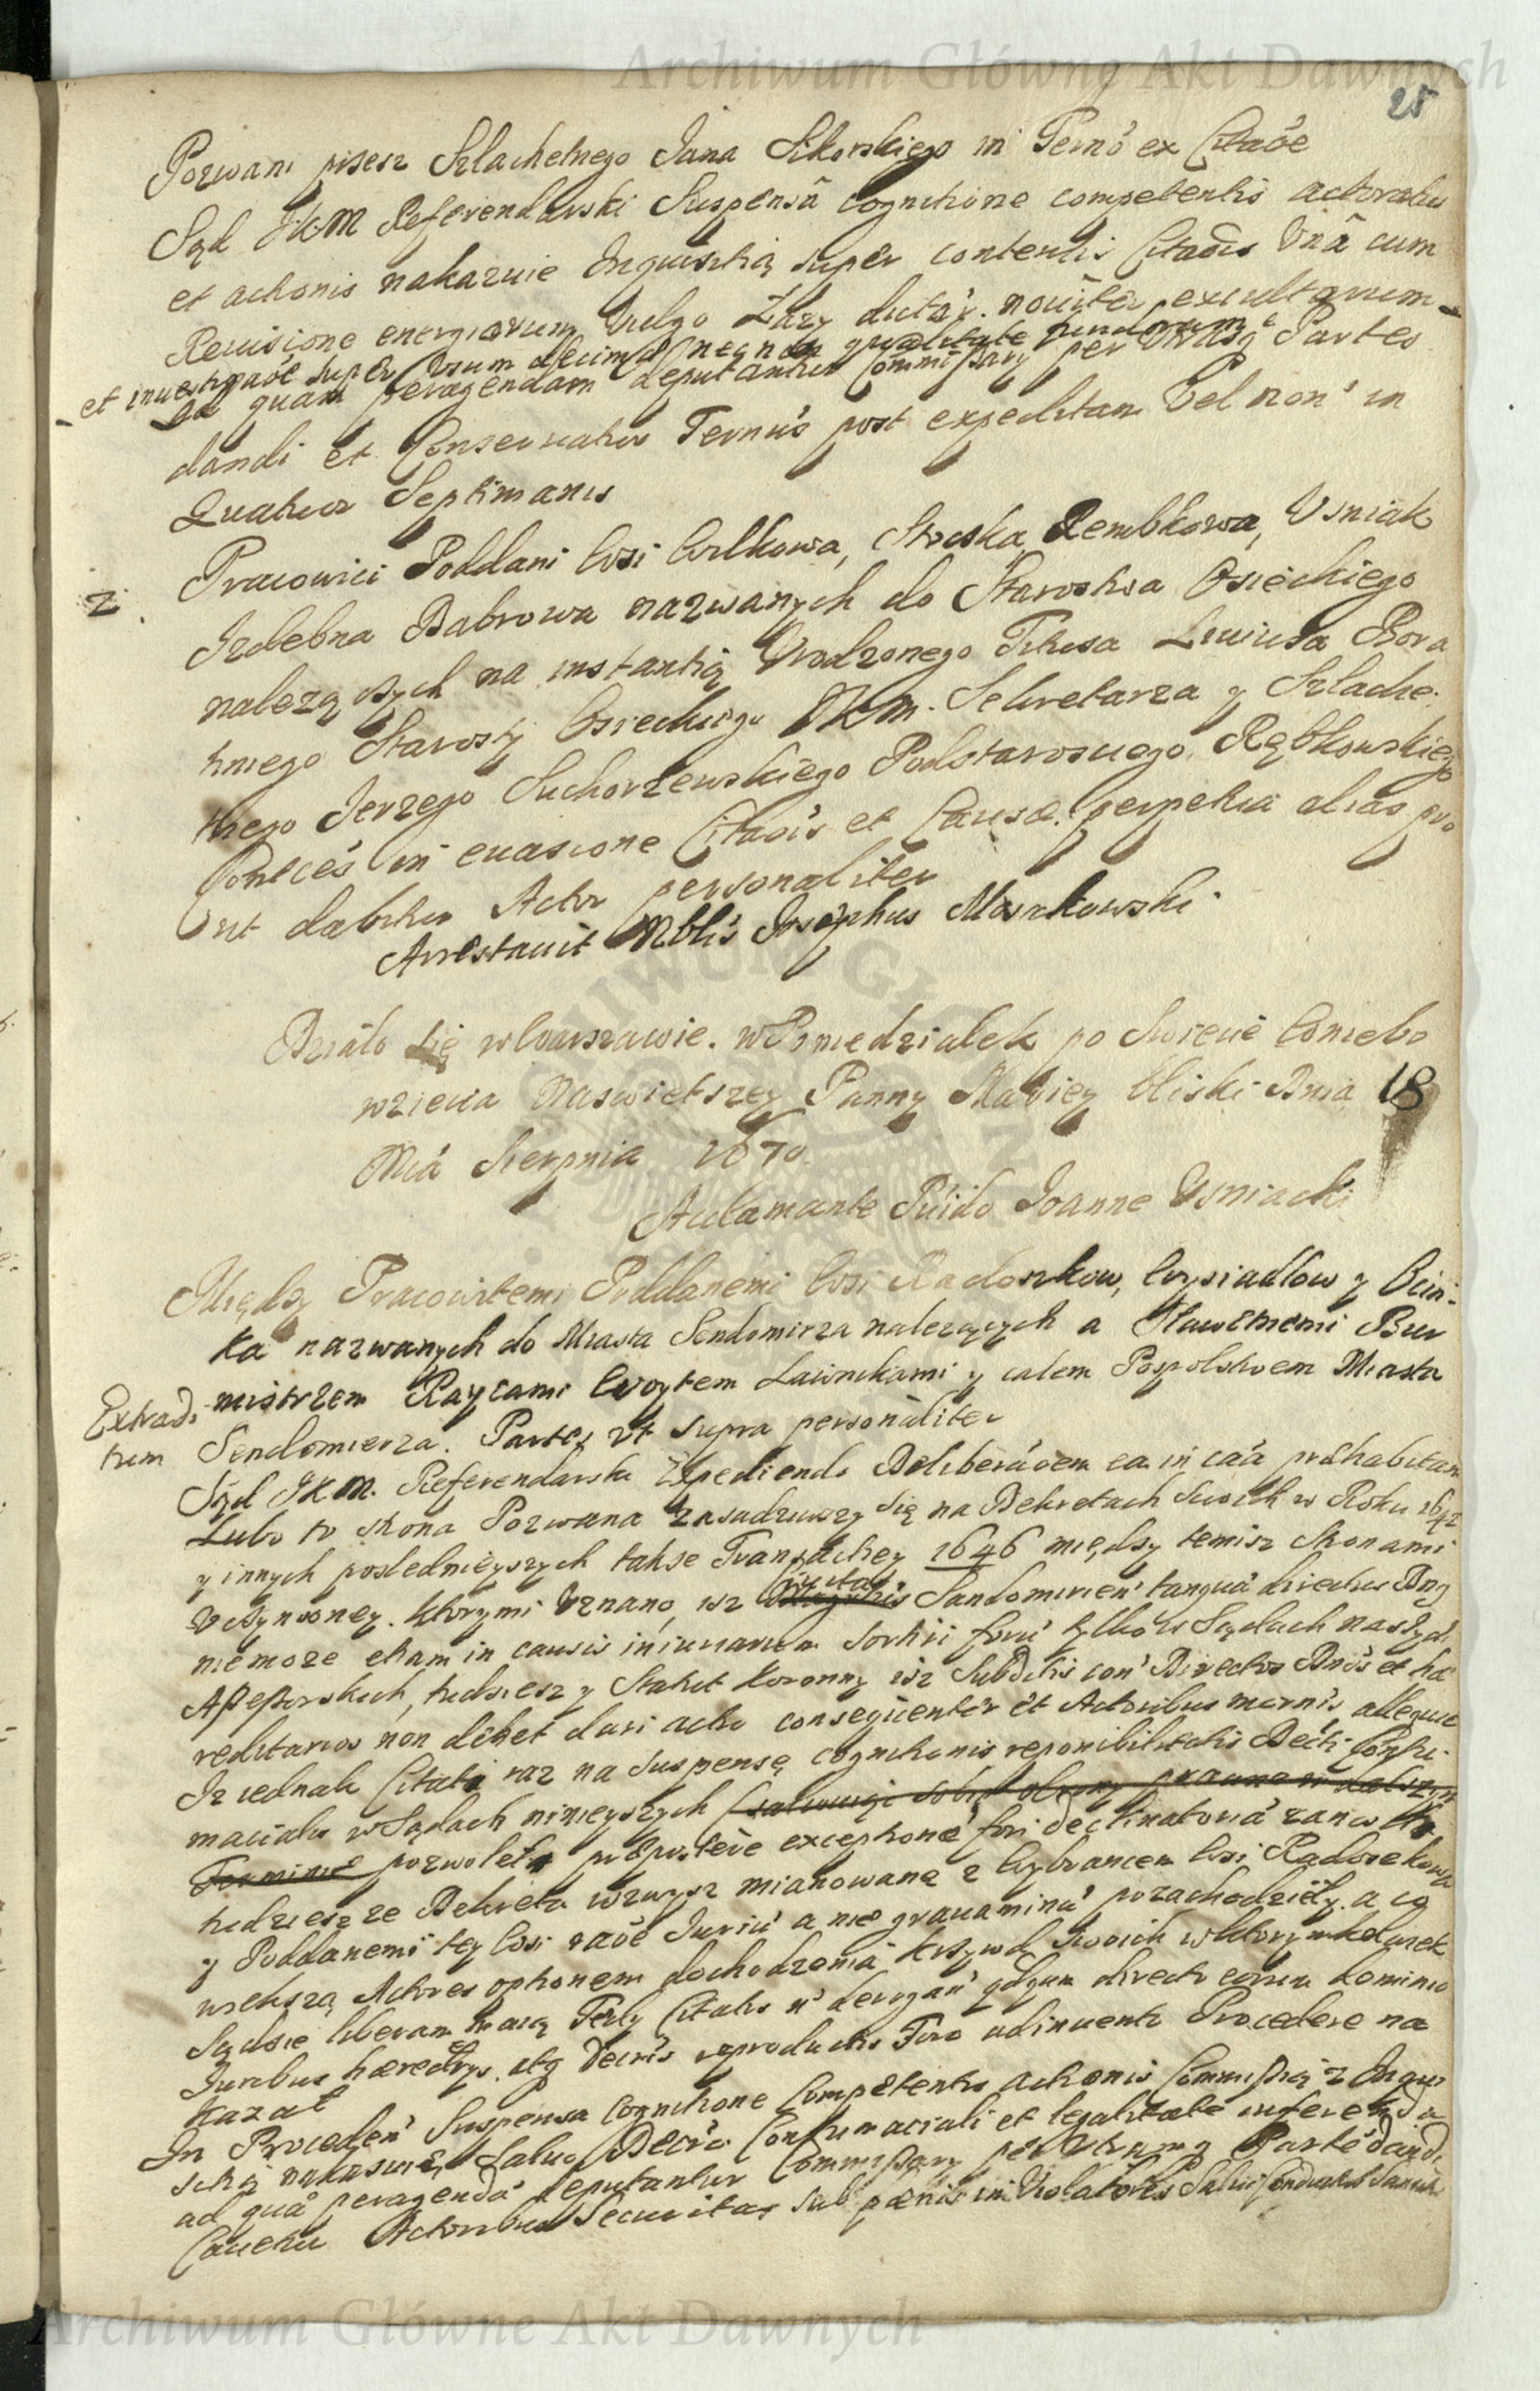 Archiwum Główne Akt Dawnych
25
Pozwani przesz Szlachetnego Jana Sikorskiego in Termo ex Citaõe
Sąd JKM Referendarski Suspensâ cognitione competentis actoratus
et actionis nakazuie Inquisitią super contentis Citaõis Vnâ cum
Reuisione energiarum Vulgo Łazy dictar. nouiter excultarum
et inuestigaõe super Vsum decimae necnon qualitate fundorum
ad quam peragendam deputantur Commissary per Vtrasq Partes
dandi et Conseruatur Termus post expeditam Vel non in
Quatuor Septimanis
2. Pracowici Poddani Wsi Wilkowa, Stoiska, Rembkowa, Vsniak
Izdebna Dabrowa nazwanych do Starostwa Osieckiego
nalezących na instantią Vrodzonego Titusa Liuiusa Bora
tiniego Starosty Osieckiego JKM. Sekretarza y Szlache-
tnego Jerzego Suchorzewskiego Podstarosciego Rębkowskiego
Contces in euasione Citaõis et Causae perpetua alias pro
Vnt dabitur Actor personaliter
Arrestauit Nblis Josephus Moszkowski
Działo Się w Warszawie. w Poniedziałek po Swiecie Wniebo
wziecia Naswietszey Panny Mariey bliski Dnia 18
Mca Sierpnia 1670
Acclamante Puido Joanne Vsniacki
Między Pracowitemi Poddanemi Wsi Radoszkow, Wysiadłow y Ocin-
ka nazwanych do Miasta Sendomirza nalezących a Sławetnemi Bur
mistrzem Raycami Woytem Ławnikami y całem Pospolstwem Miasta
Extradi-
tum
Sendomierza. Partes vt supra personaliter
Sąd JKM. Referendarski Expediendo Deliberãoem ea in cãa praehabitam
Lubo to strona Pozwana zasadziwszy się na Dekretach Swoich w Roku 1642
y innych posledniejszych takze Transactiey 1646 między temisz stronami
Vczynioney. ktorymi Vznano, isz Ciuitas Sandomirien tanquã directus Dnus
niemoze etiam in causis iniuriarum sortiri forũ tylko w Sądach naszych
Assessorskich, tudziesz y Statut Koronny isz Subditis con Directos Dnõs et hae
reditarios non debet dari actio consequenter et Actoribus mernis alleguie
Iz iednak Citati raz na suspensę cognitionis reponibilitatis Decti Contu-
macialis w Sądach ninieyszych
Termine pozwoleła praepostere exceptionẽ fori declinatoriã zaniosła
tudziesz ze Dekreta wzwysz mianowane z Wybrancem Wsi Radoszkowa
y Poddanemi tey Wsi raõe Juriũ a nie grauaminũ pozachodzieły. a co
wieksza Actores optionem dochodzenia krzywd Swoich w ktorymkolwiek
Sądzie liberam maią
Juribus haeredtrys. atq Decris reproductis Foro adinuento Procedere na
kazał
In Proceden Suspensa Cognitione Competentis actionis Commissią z Inqui
sitią nakazuie, Saluo Decro Contumaciali et legalitate inferenda
ad quã peragendã deputantur Commissary per Vtramq Partẽ dandi
Cauetur Actoribus Securitas sub paenis in Violatores Salui Conductus Sancitis
Archiwum Główne Akt Dawnych